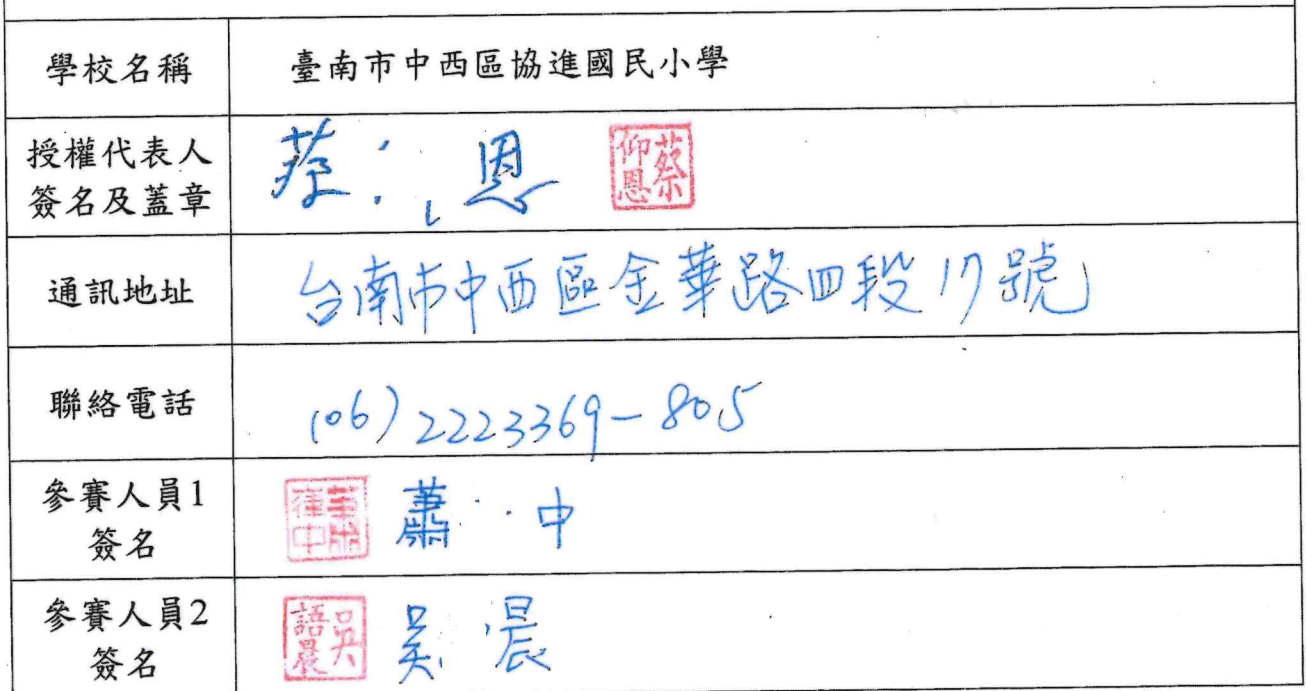 學校名稱
臺南市中西區協進國民小學
授權代表人
簽名及蓋章
蔡 恩
蔡仰恩
通訊地址
台南市中西區金華路四段17號
聯絡電話
(06) 2223369-805
參賽人員1
簽名
蕭 中
參賽人員2
簽名
吳語晨
吳 晨